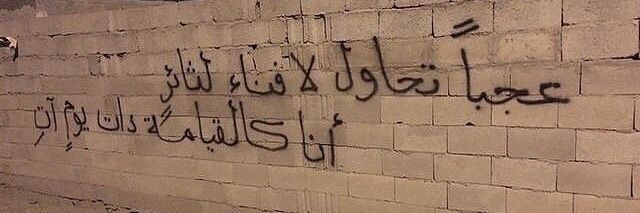 عجباً تحاول لا فناء لثائر
أنا كالقيامة ذات يومٍ آتِ